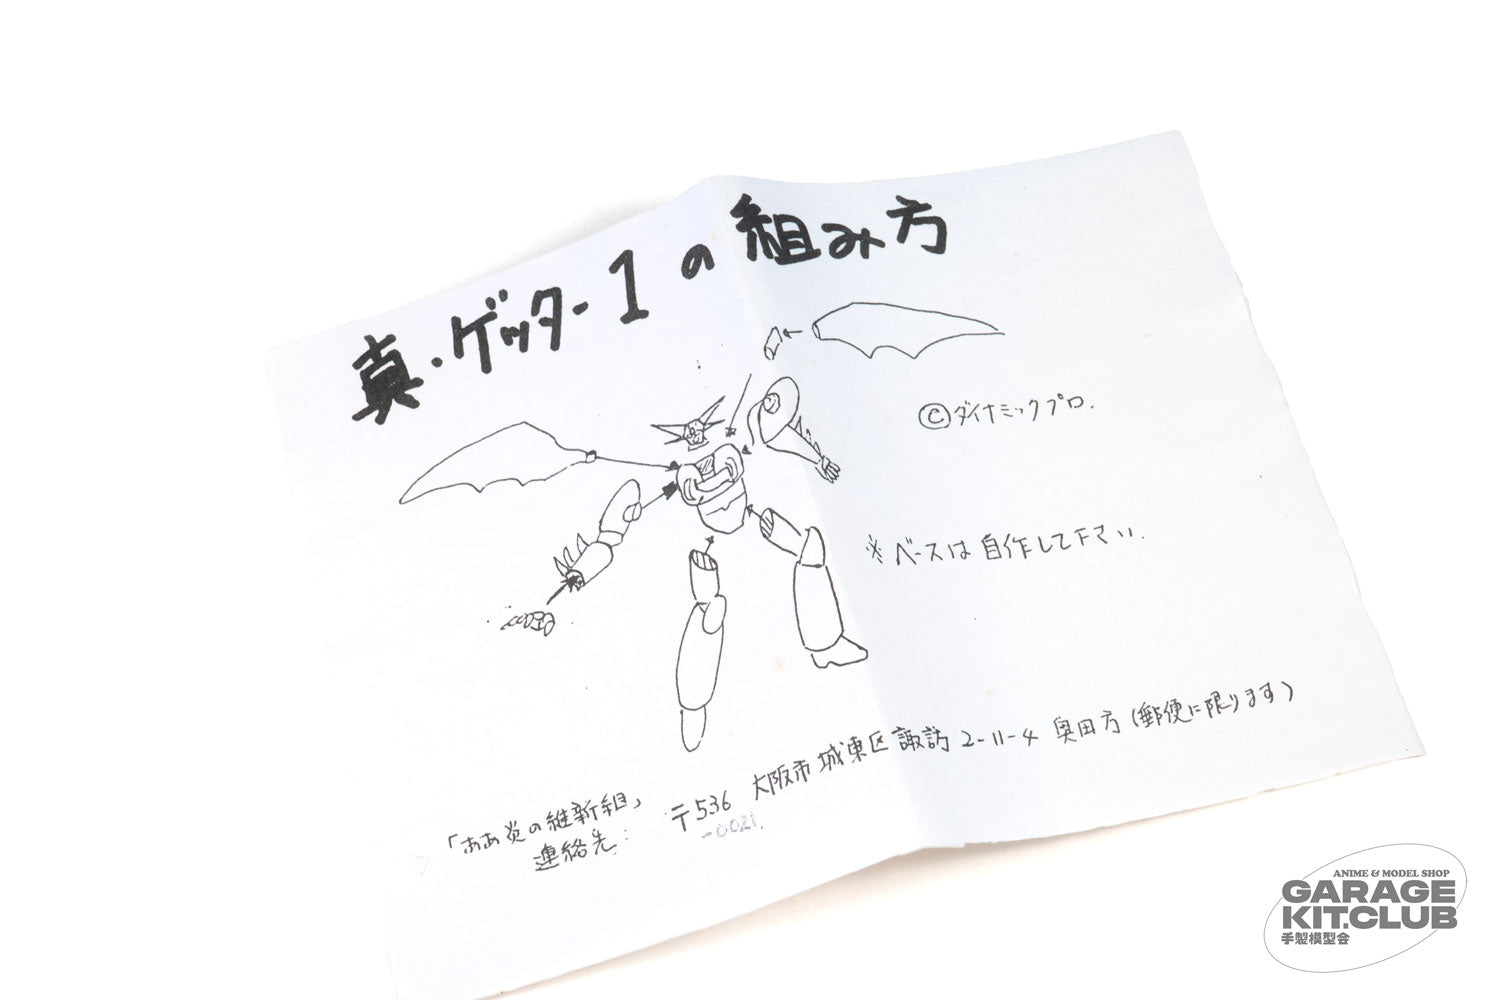 真・ゲッター1の組み方
©ダイナミックプロ.
※ベースは自作して下さい.
「ああ炎の維新組」
連絡先:
〒536 大阪市城東区諏訪2-11-4 奥田方(郵便に限ります)
-0021.
ANIME & MODEL SHOP
GARAGE
KIT.CLUB
手製模型会